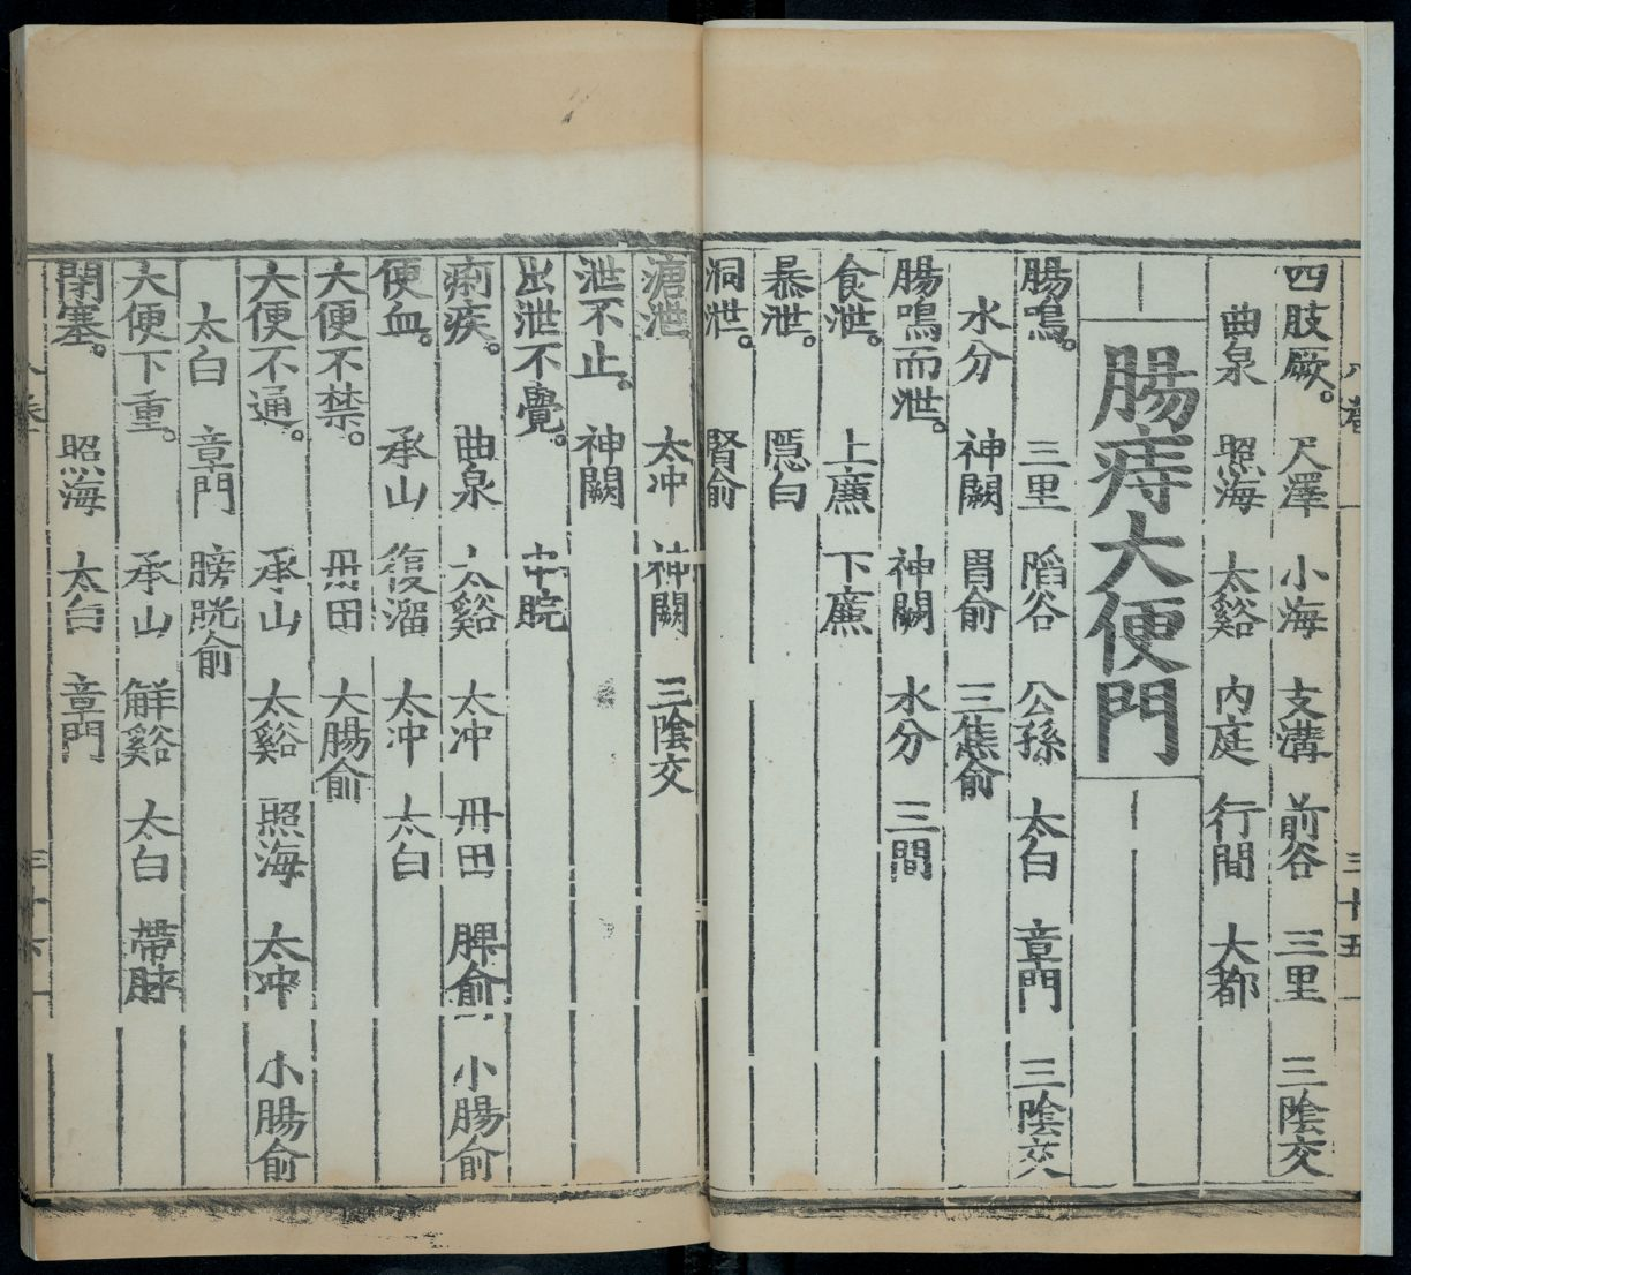 四肢厥。 尺澤 小海 支溝 前谷 三里 三陰交
曲泉 照海 太谿 内庭 行間 大都
腸痔大便門
腸鳴。 三里 陷谷 公孫 太白 章門 三陰交
水分 神闕 胃俞 三焦俞
腸鳴而泄。 神闕 水分 三間
食泄。 上廉 下廉
暴泄。 隱白
洞泄。 腎俞
溏泄 太冲 神闕 三陰交
泄不止。 神闕
出泄不覺。 中脘
痢疾。 曲泉 太谿 太冲 丹田 脾俞 小腸俞
便血。 承山 復溜 太冲 太白
大便不禁。 丹田 大腸俞
大便不通。 承山 太谿 照海 太冲 小腸俞
太白 章門 膀胱俞
大便下重。 承山 解谿 太白 帶脉
閉塞。 照海 太白 章門